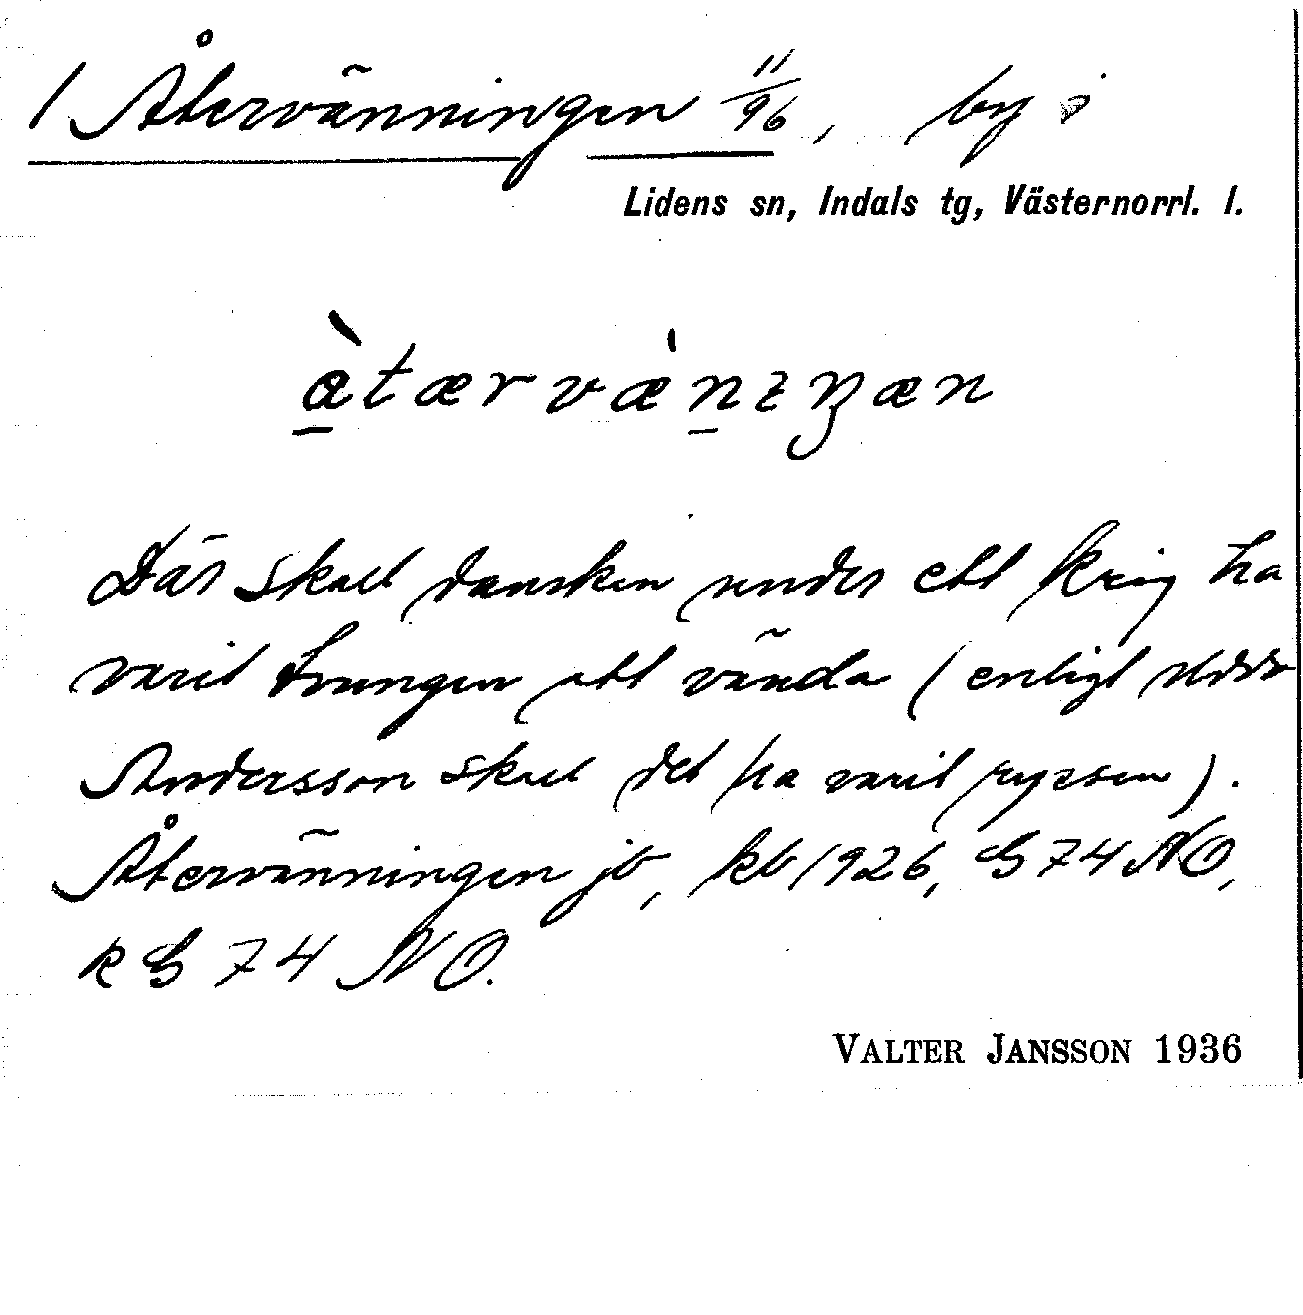 1 Återvänningen 11/96, by i
Lidens sn, Indals tg, Västernorrl. l.
àtærvæ̀nıŋæn
Där skall dansken under ett krig ha
varit tvungen att vända (enligt
Andersson skall det ha varit ryssen).
Återvänningen jb, kb 1926, G 74 NO,
k G 74 NO.
VALTER JANSSON 1936